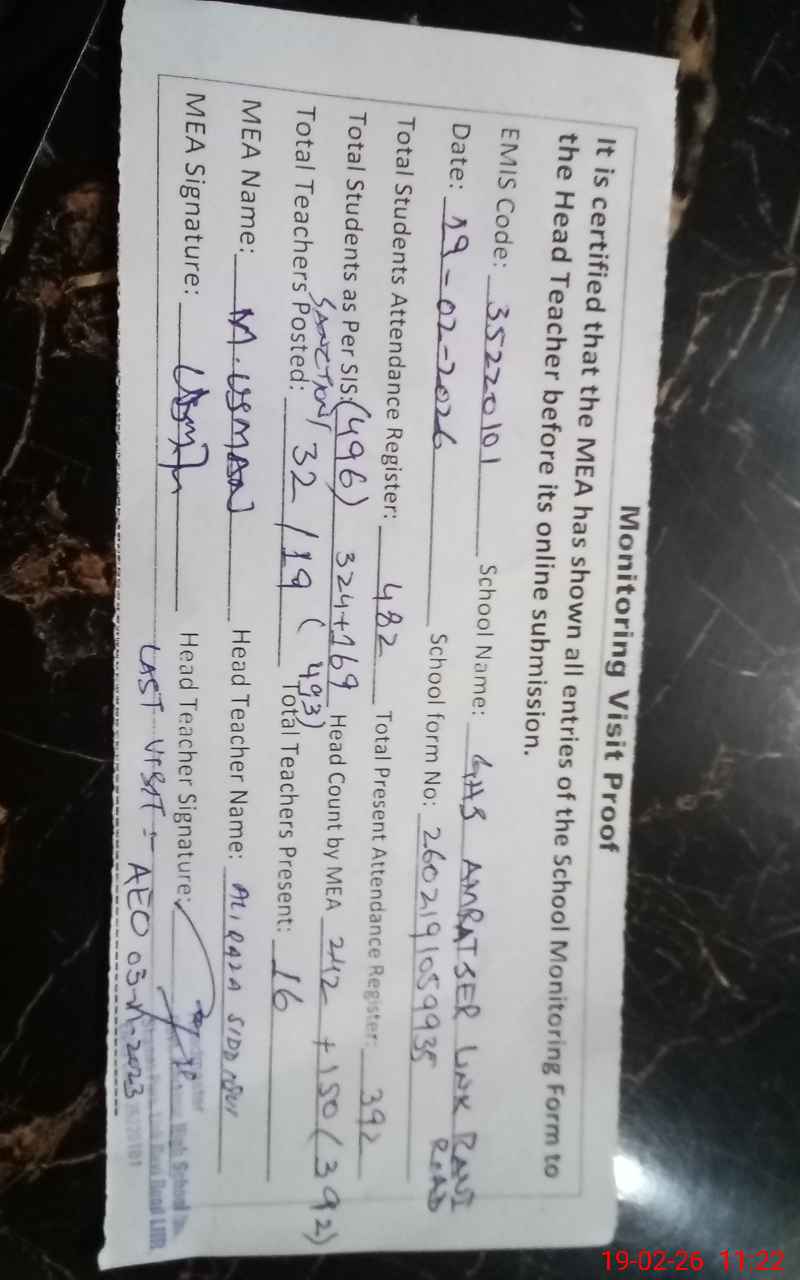 Monitoring Visit Proof
It is certified that the MEA has shown all entries of the School Monitoring Form to
the Head Teacher before its online submission.
EMIS Code: 35220101 School Name: GHS AMRATSER LINK RAVI ROAD
Date: 19-02-2026 School form No: 2602191059935
Total Students Attendance Register: 482 Total Present Attendance Register: 392
Total Students as Per SIS: (496) 324+169 (493) Head Count by MEA 242 + 150 (392)
SANCTION/
Total Teachers Posted: 32/19 Total Teachers Present: 16
MEA Name: M. USMAN Head Teacher Name: ALI RAZA SIDDIQUI
MEA Signature: Usman Head Teacher Signature:
High School
Link Ravi Road LHR
LAST VISIT :- AEO 03-11-2023
19-02-26 11:22